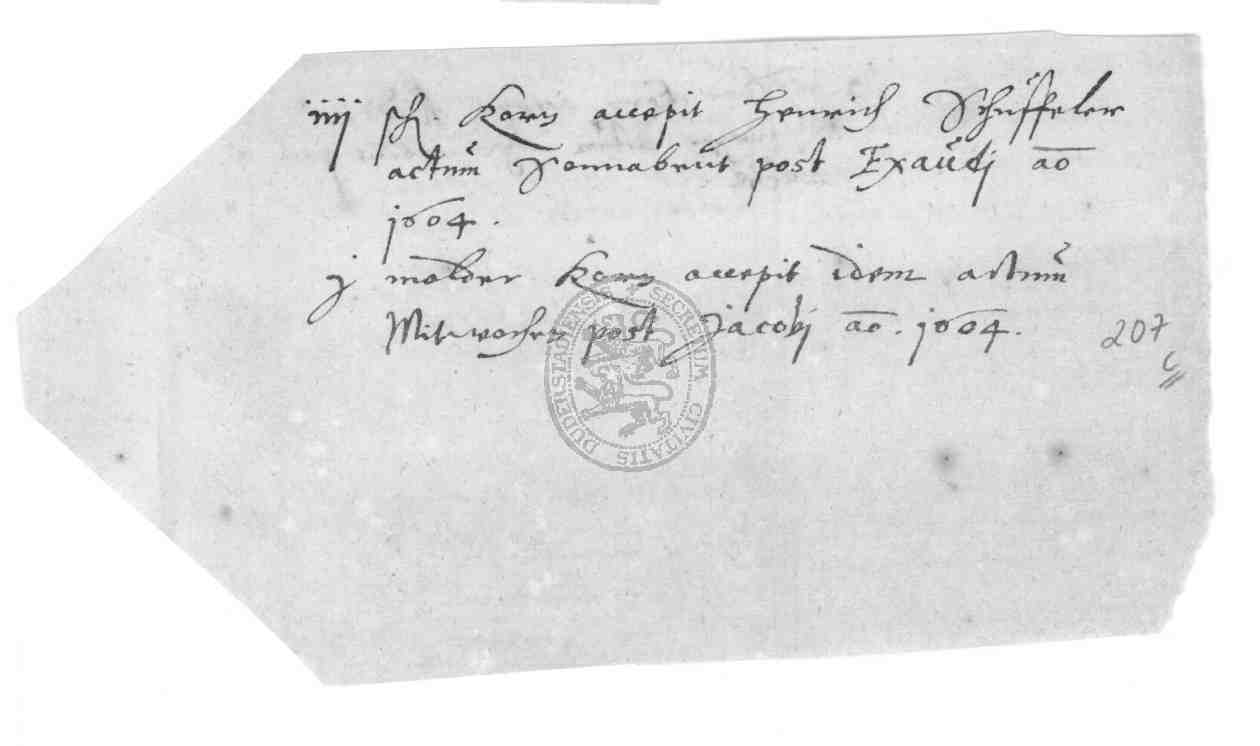 iiij sch. Korn accepit Henrich Schüffeler
actum Sonnabent post Exaudj ao
1604.
j molder Korn accepit idem actum
Mitwochen post Jacobj ao. 1604.
207
SECRETUM CIVITATIS DUDENSTADENSIS